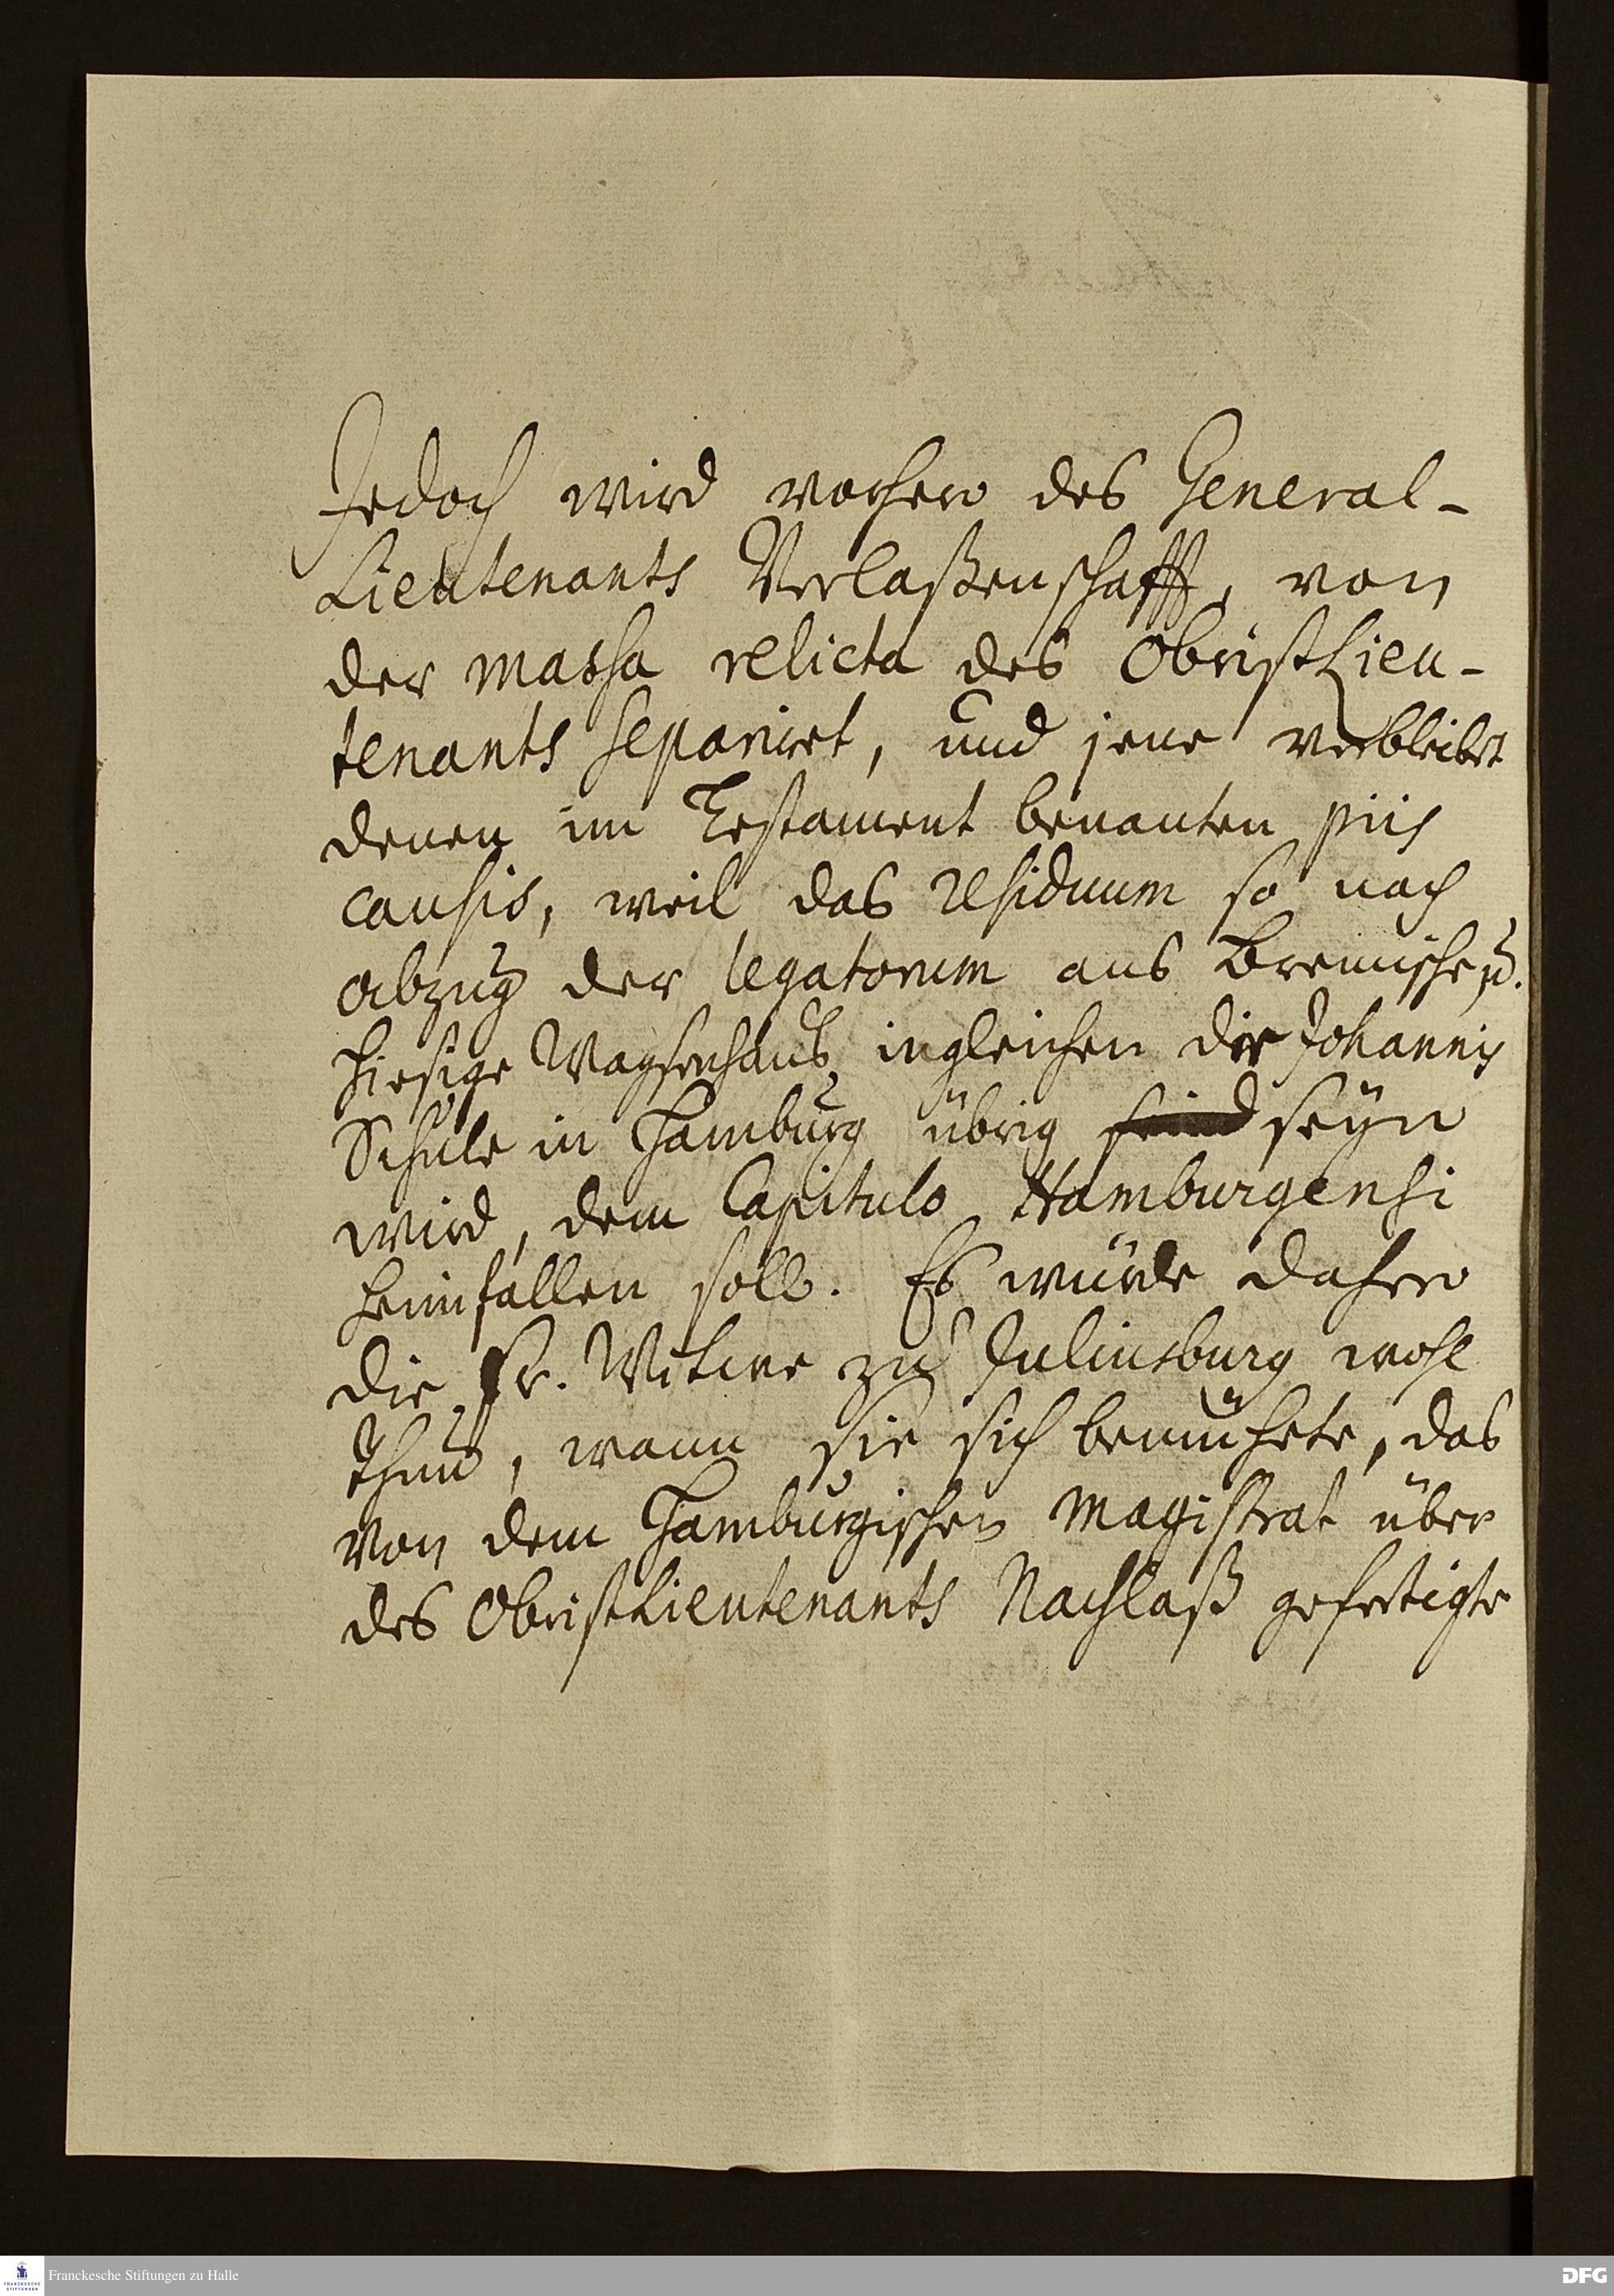 Jedoch wird vorhero des General-
Lieutenants Verlaßenschafft, von
der massa relicta des Obristlieu-
tenants separiret, und jene verbleibt
denen im Testament benanten piis
causis, weil das residuum so nach
abzug der legatorum ans Bremische u.
hiesige Waysenhaus, ingleichen die Johannis
Schule in Hamburg übrig seind seyn
wird, dem Capitulo Hamburgensi
heimfallen soll. Es würde dahero
die Fr. Witwe zu Juliusburg wohl
thun, wann sie sich bemühete, das
von dem Hamburgischen Magistrat über
des Obristlieutenants Nachlaß gefertigte
Franckesche Stiftungen zu Halle
FRANCKESCHE
STIFTUNGEN
DFG